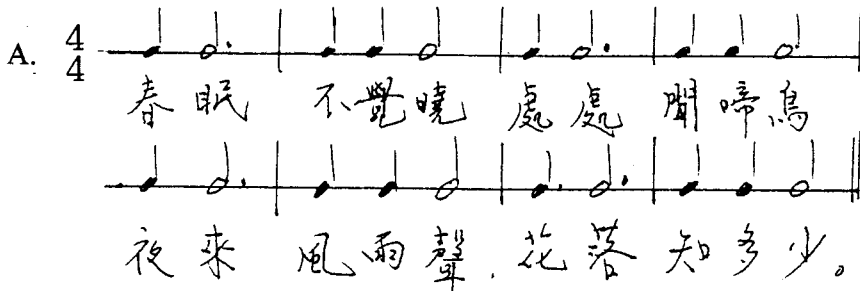 A. 4/4
春眠 不覺曉 處處 聞啼鳥
夜來 風雨聲.花落 知多少。